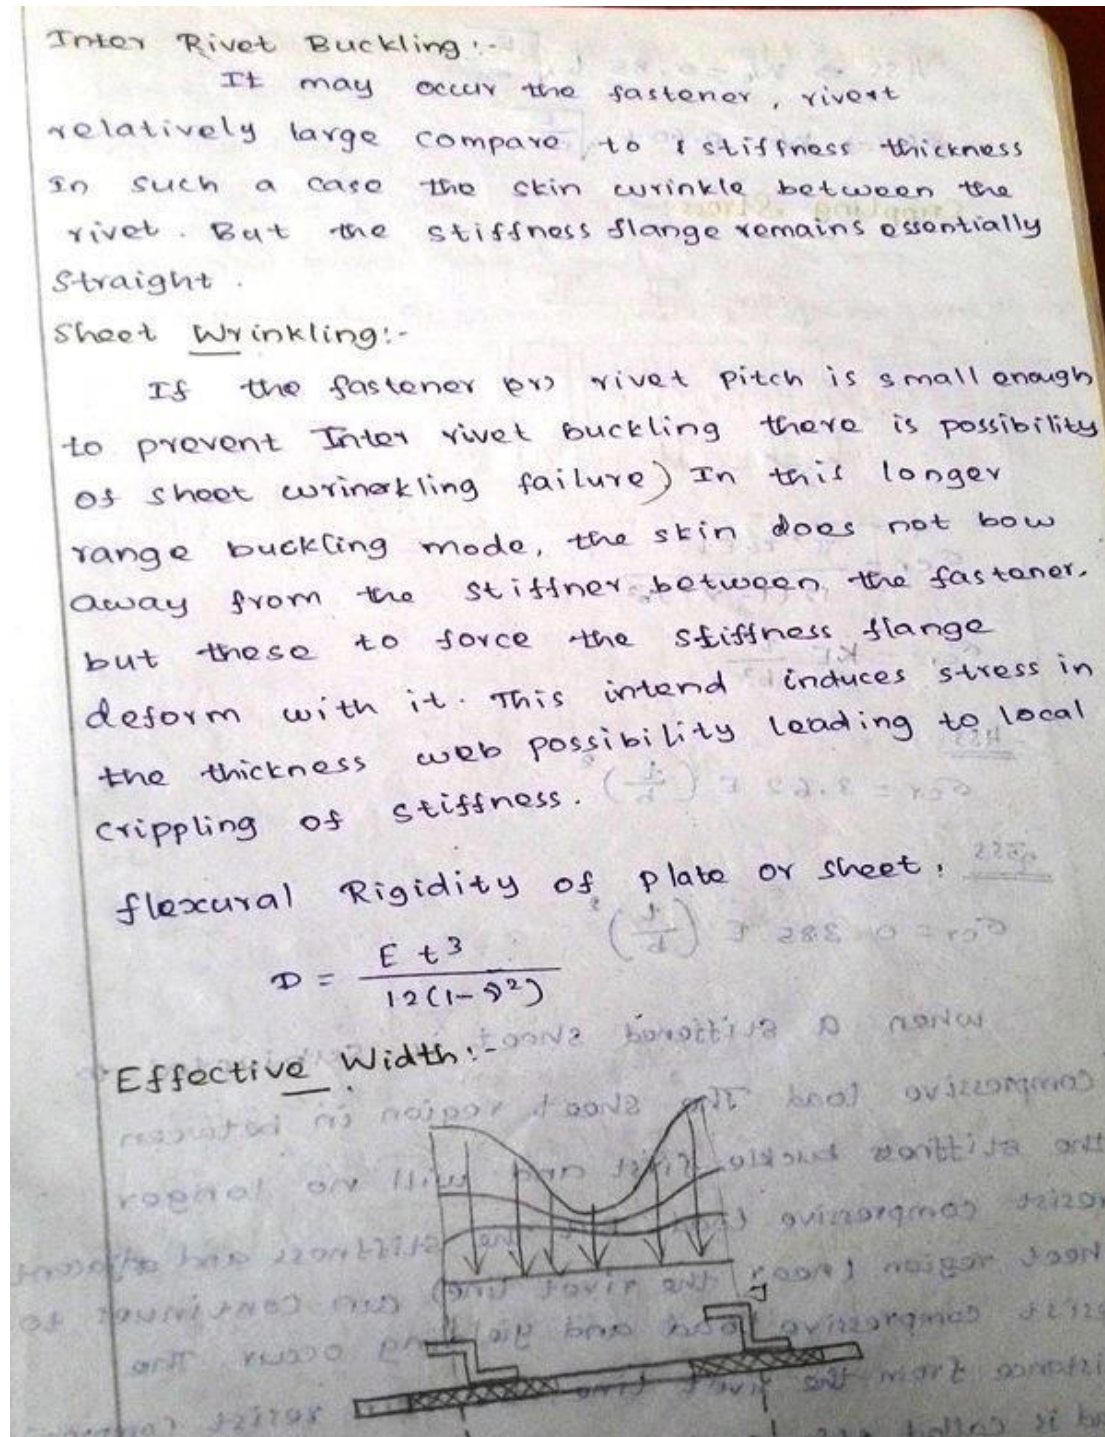 Inter Rivet Buckling :-
It may occur the fastener, rivert
relatively large compare to stiffness thickness
In such a case the skin wrinkle between the
rivet. But the stiffness flange remains essentially
straight.
Sheet Wrinkling:-
If the fastener (or) rivet pitch is small enough
to prevent Inter rivet buckling there is possibility
of sheet wrinerkling failure) In this longer
range buckling mode, the skin does not bow
away from the stiffner between the fastener.
but these to force the stiffness flange
deform with it. This intend induces stress in
the thickness web possibility leading to local
crippling of stiffness.
flexural Rigidity of plate or sheet,
D = E t³ / 12(1-ϑ²)
Effective Width :-